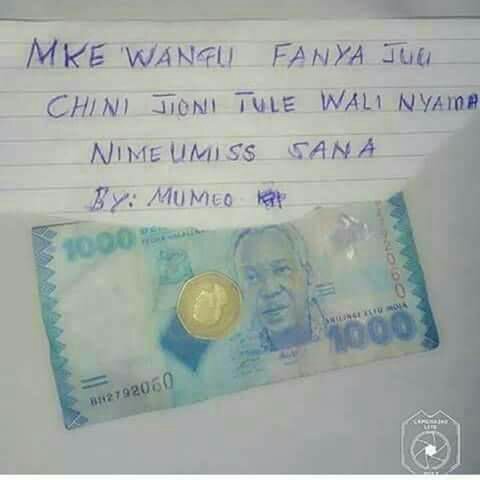 MKE WANGU FANYA JUU
CHINI JIONI TULE WALI NYAMA
NIMEUMISS SANA
BY: MUMEO
1000
SHILINGI ELFU MOJA
1000
BH2792060